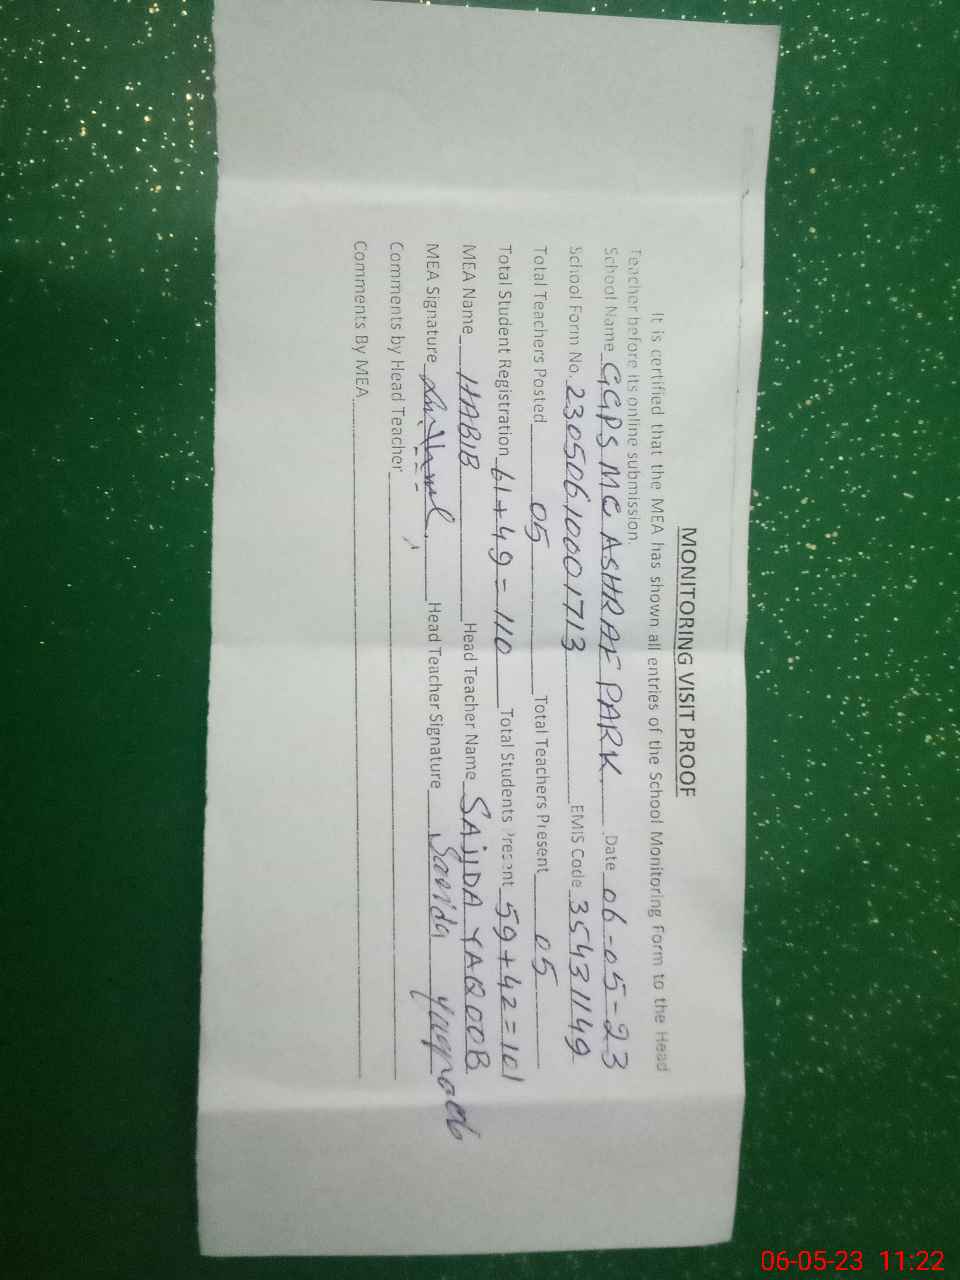 MONITORING VISIT PROOF
It is certified that the MEA has shown all entries of the School Monitoring Form to the Head
Teacher before its online submission.
School Name GGPS MC ASHRAF PARK Date 06-05-23
School Form No. 23050610001713 EMIS Code 35431149
Total Teachers Posted 05 Total Teachers Present 05
Total Student Registration 61+49=110 Total Students Present 59+42=101
MEA Name HABIB Head Teacher Name SAJIDA YAQOOB
MEA Signature Head Teacher Signature Sajida Yaqoob
Comments by Head Teacher
Comments By MEA
06-05-23 11:22